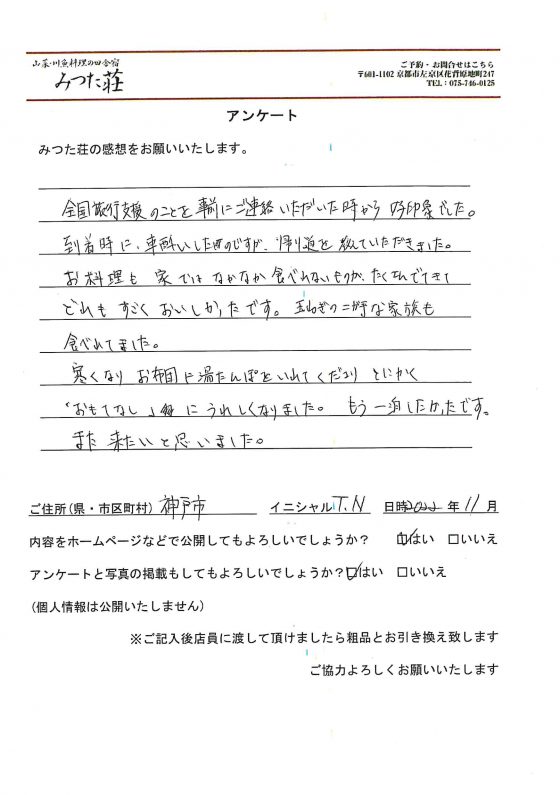 山菜・川魚料理の田舎宿
みつた荘
ご予約・お問合せはこちら
〒601-1102 京都市左京区花背原地町247
TEL：075-746-0125
アンケート
みつた荘の感想をお願いいたします。
全国旅行支援のことを事前にご連絡いただいた時から 好印象でした。
到着時に、車酔いしたのですが、帰り道を教えていただきました。
お料理も 家では なかなか食べれないものが、たくさんでてきて
どれも すごく おいしかったです。玉ねぎの苦手な家族も
食べれてました。
寒くなり お布団に湯たんぽをいれてくださり とにかく
「おもてなし」 にうれしくなりました。 もう一泊したかったです。
また 来たいと思いました。
ご住所(県・市区町村) 神戸市 イニシャル T.N 日時 2022 年 11 月
内容をホームページなどで公開してもよろしいでしょうか？ ☑はい □いいえ
アンケートと写真の掲載もしてもよろしいでしょうか？☑はい □いいえ
(個人情報は公開いたしません)
※ご記入後店員に渡して頂けましたら粗品とお引き換え致します
ご協力よろしくお願いいたします